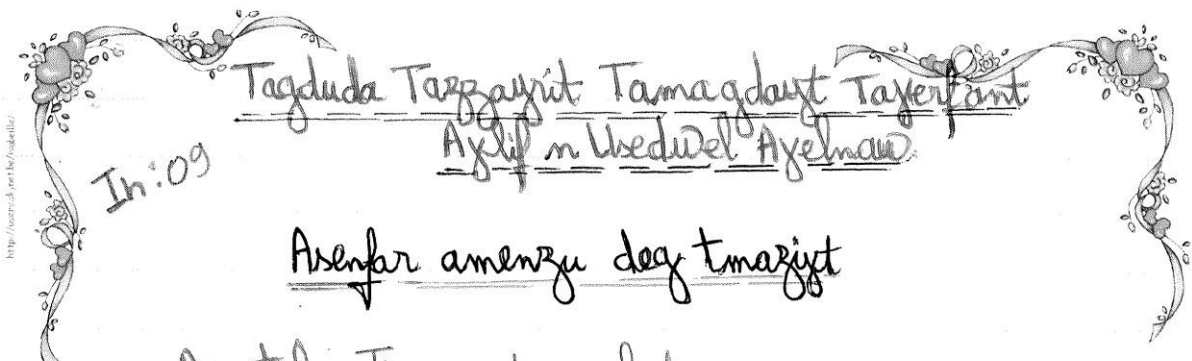 Tagduda Tazzayrit Tamagdayt Taɣerfant
Aɣlif n Usedwel Aɣelnaw
In:09
Asenfar amenzu deg tmaziɣt